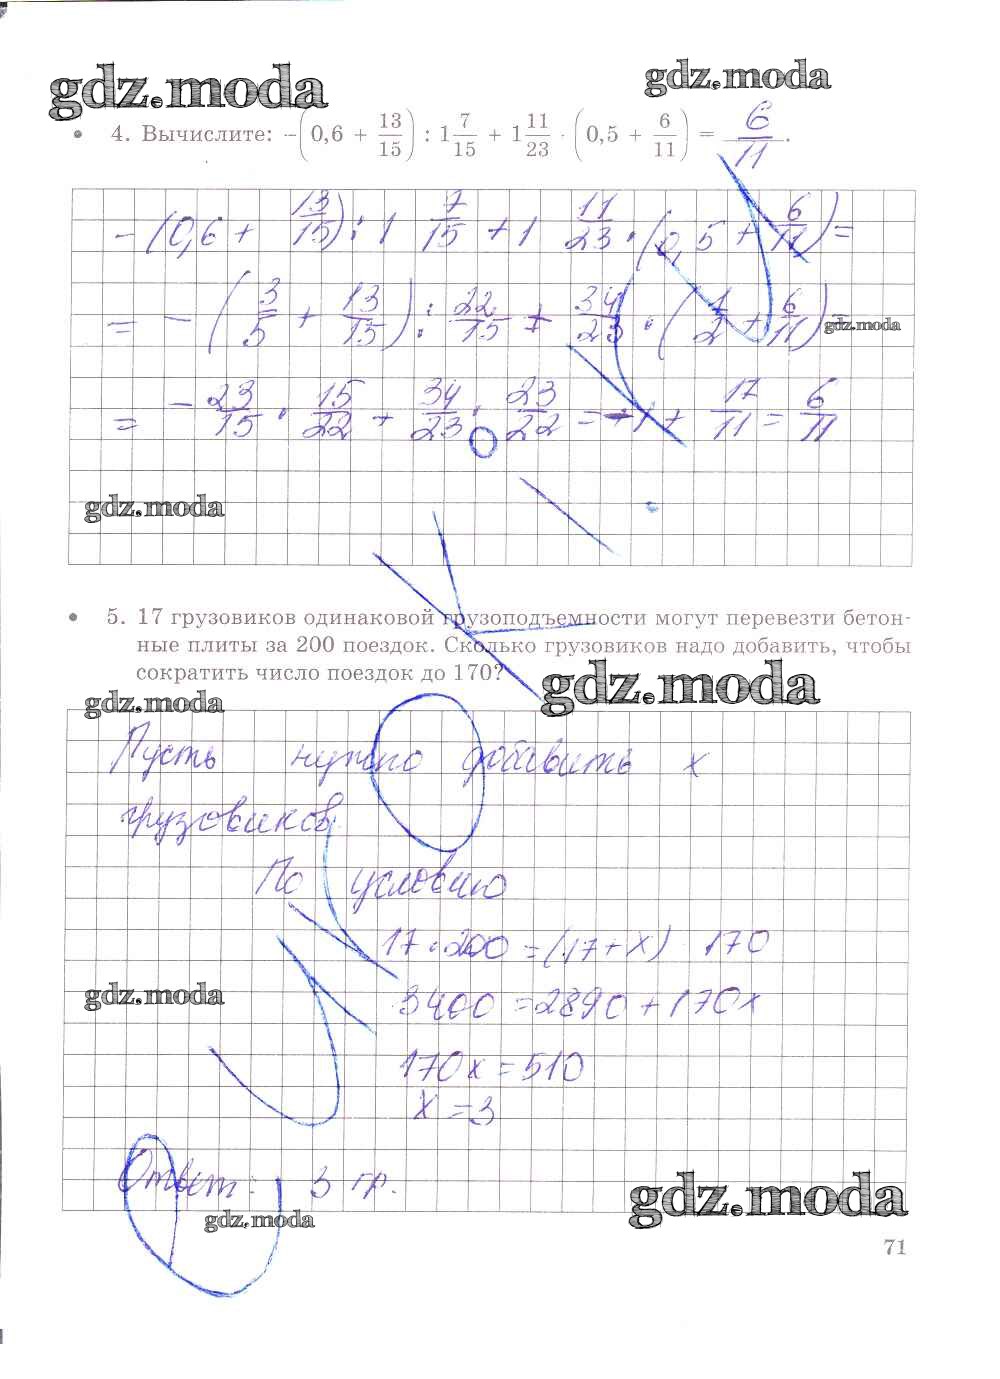 gdz.moda gdz.moda
• 4. Вычислите: −(0,6 + 13/15) : 1 7/15 + 1 11/23 · (0,5 + 6/11) = 6/11.
− (0,6 + 13/15) : 1 7/15 + 1 11/23 · (0,5 + 6/11) =
= − (3/5 + 13/15) : 22/15 + 34/23 · (1/2 + 6/11) =
gdz.moda
= − 23/15 · 15/22 + 34/23 · 23/22 = −1 + 17/11 = 6/11
gdz.moda
• 5. 17 грузовиков одинаковой грузоподъемности могут перевезти бетон-
ные плиты за 200 поездок. Сколько грузовиков надо добавить, чтобы
сократить число поездок до 170?
gdz.moda
gdz.moda
Пусть нужно добавить x
грузовиков.
По условию
17 · 200 = (17 + x) 170
3400 = 2890 + 170x
gdz.moda
170x = 510
x = 3
Ответ: 3 гр.
gdz.moda
gdz.moda
71